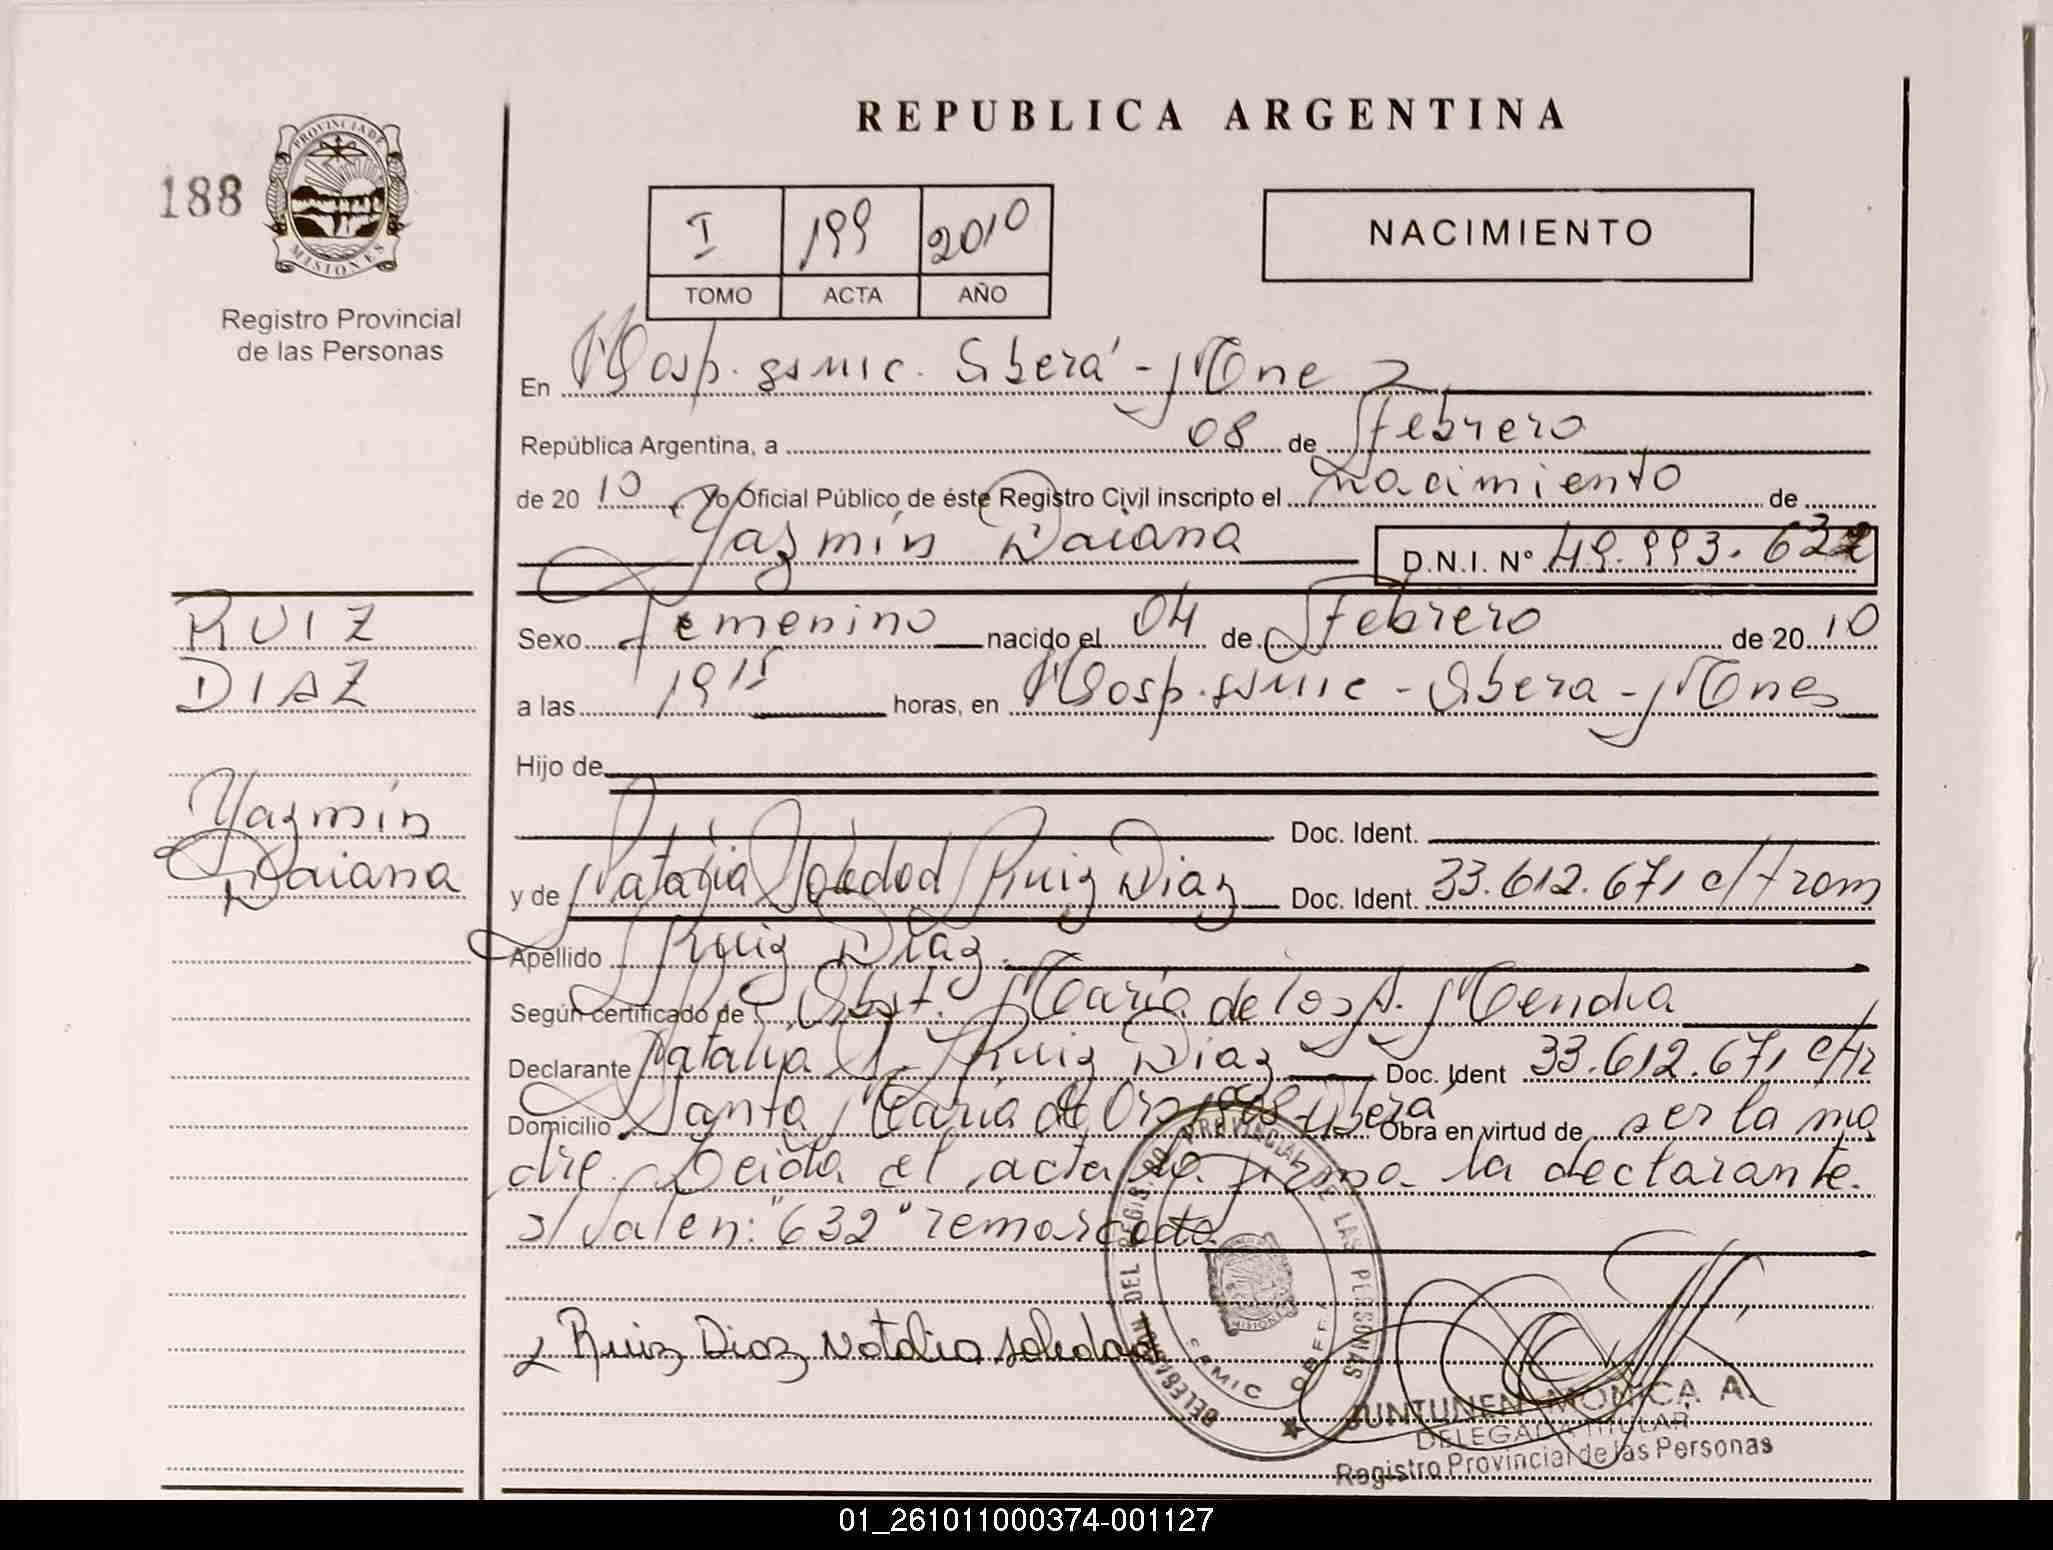 REPUBLICA ARGENTINA
188
PROVINCIA DE
MISIONES
Registro Provincial
de las Personas
I 199 2010
TOMO ACTA AÑO
NACIMIENTO
En Hosp. SSMIC. Oberá - Mnes
República Argentina, a 08 de Febrero
de 2010 Yo Oficial Público de éste Registro Civil inscripto el nacimiento de
Yazmín Daiana D.N.I. Nº 49.993.632
RUIZ
DIAZ
Yazmín
Daiana
Sexo Femenino nacido el 04 de Febrero de 2010
a las 19 15 horas, en Hosp. SSMIC - Obera - Mnes
Hijo de
Doc. Ident.
y de Natalia Soledad Ruiz Diaz Doc. Ident. 33.612.671 c/from
Apellido Ruiz Diaz
Según certificado de Obst. María de los A. Mendia
Declarante Natalia S. Ruiz Diaz Doc. Ident 33.612.671 c/fr
Domicilio Santa María de Oro Oberá Obra en virtud de ser la ma
dre. Leída el acta la firma la declarante.
s/ Valen: "632" remarcado.
Ruiz Diaz Natalia Soledad
DELEGACION DEL REGISTRO PROVINCIAL DE LAS PERSONAS
MISIONES
OBERA
JUNTUNEN MONICA A.
DELEGADA TITULAR
Registro Provincial de las Personas
01_261011000374-001127